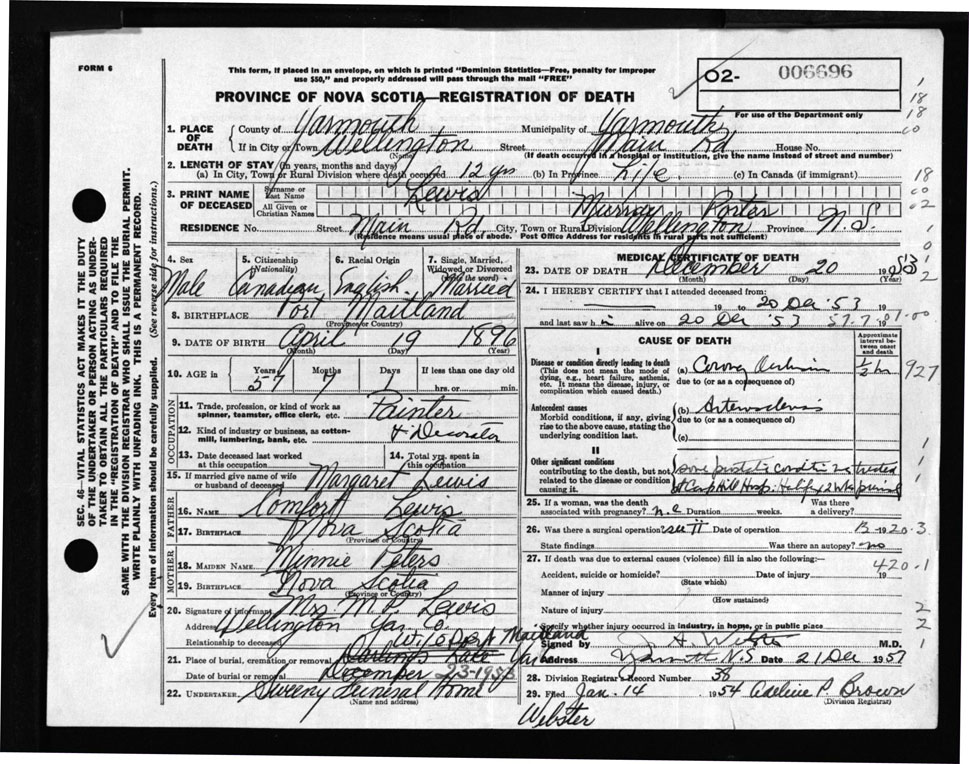 FORM 6
This form, if placed in an envelope, on which is printed "Dominion Statistics—Free, penalty for improper
use $50," and properly addressed will pass through the mail "FREE"
O2- 006696
For use of the Department only
PROVINCE OF NOVA SCOTIA—REGISTRATION OF DEATH
1. PLACE OF DEATH { County of Yarmouth Municipality of Yarmouth
If in City or Town Wellington (Name) Street Main Rd. House No.
(If death occurred in a hospital or institution, give the name instead of street and number)
2. LENGTH OF STAY (in years, months and days)
(a) In City, Town or Rural Division where death occurred 12 yrs (b) In Province Life. (c) In Canada (if immigrant)
3. PRINT NAME OF DECEASED { Surname or Last Name Lewis
All Given or Christian Names Murray Porter
RESIDENCE No. Street Main Rd. City, Town or Rural Division Wellington Province N.S.
(Residence means usual place of abode. Post Office Address for residents in rural parts not sufficient)
4. Sex 5. Citizenship (Nationality) 6. Racial Origin 7. Single, Married, Widowed or Divorced (Write the word)
Male Canadian English Married
8. BIRTHPLACE Port Maitland
(Province or Country)
9. DATE OF BIRTH April 19 1896
(Month) (Day) (Year)
10. AGE in { Years Months Days If less than one day old
57 7 1 hrs. or min.
OCCUPATION
11. Trade, profession, or kind of work as spinner, teamster, office clerk, etc. Painter
12. Kind of industry or business, as cotton-mill, lumbering, bank, etc. & Decorator
13. Date deceased last worked at this occupation 14. Total yrs. spent in this occupation
15. If married give name of wife or husband of deceased Margaret Lewis
FATHER
16. NAME Comfort Lewis
17. BIRTHPLACE Nova Scotia
(Province or Country)
MOTHER
18. MAIDEN NAME Minnie Peters
19. BIRTHPLACE Nova Scotia
(Province or Country)
20. Signature of informant Mrs. M. P. Lewis
Address Wellington Yar. Co.
Relationship to deceased Wife
21. Place of burial, cremation or removal Port Maitland
Date of burial or removal December 23-1953
22. UNDERTAKER Sweeny Funeral Home
(Name and address)
MEDICAL CERTIFICATE OF DEATH
23. DATE OF DEATH December 20 1953
(Month) (Day) (Year)
24. I HEREBY CERTIFY that I attended deceased from:
19 to 20 Dec '53 19
and last saw h im alive on 20 Dec '53 19
CAUSE OF DEATH
Approximate interval between onset and death
I
Disease or condition directly leading to death
(This does not mean the mode of dying, e.g., heart failure, asthenia, etc. It means the disease, injury, or complication which caused death.)
(a) ½ hr 927
due to (or as a consequence of)
Antecedent causes
Morbid conditions, if any, giving rise to the above cause, stating the underlying condition last.
(b) Arteriosclerosis
due to (or as a consequence of)
(c)
II
Other significant conditions
contributing to the death, but not related to the disease or condition causing it.
some prostatic condition treated
at Camp Hill Hosp. Halifax 2 wks previous
25. If a woman, was the death associated with pregnancy? Duration weeks. Was there a delivery?
26. Was there a surgical operation? see II Date of operation 19
State findings Was there an autopsy? no
27. If death was due to external causes (violence) fill in also the following:—
420.1
Accident, suicide or homicide? (State which) Date of injury 19
Manner of injury (How sustained)
Nature of injury
Specify whether injury occurred in industry, in home, or in public place
Signed by J. A. Webster M.D.
Address Yarmouth N.S. Date 21 Dec 1957
28. Division Registrar's Record Number 38
29. Filed Jan. 14 1954 Adeline P. Brown
(Division Registrar)
Webster
SEC. 46—VITAL STATISTICS ACT MAKES IT THE DUTY
OF THE UNDERTAKER OR PERSON ACTING AS UNDER-
TAKER TO OBTAIN ALL THE PARTICULARS REQUIRED
IN THE "REGISTRATION OF DEATH" AND TO FILE THE
SAME WITH THE DIVISION REGISTRAR WHO SHALL ISSUE THE BURIAL PERMIT.
WRITE PLAINLY WITH UNFADING INK. THIS IS A PERMANENT RECORD.
Every item of information should be carefully supplied. (See reverse side for instructions.)